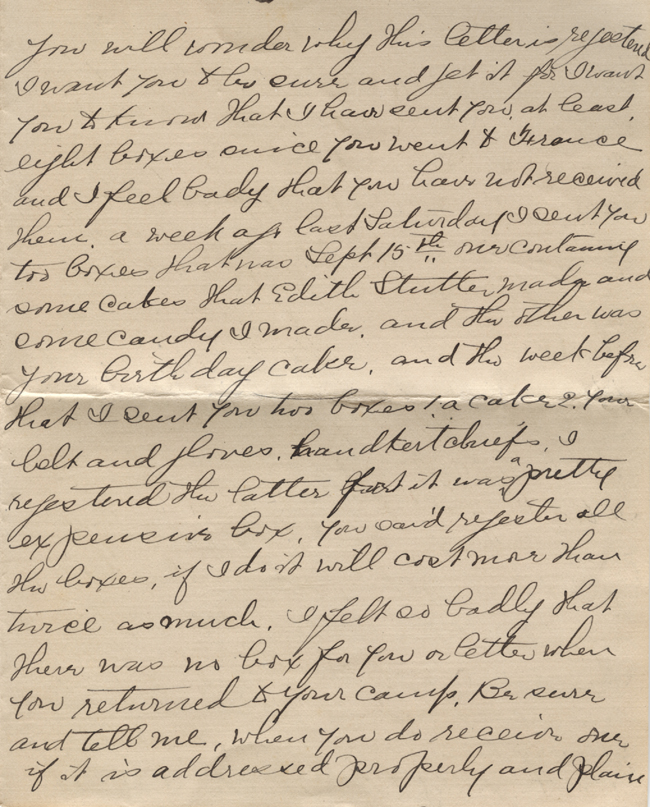 You will wonder why this letter is regestered
I want you to be sure and get it for I want
you to know that I have sent you, at least,
eight boxes since you went to France
and I feel bady that you have not received
them. a week ago last Saturday I sent you
two boxes that was Sept 15th one containing
some cakes that Edith Stutter made and
some candy I made. and the other was
your birth day cake, and the week before
that I sent you two boxes! a cake 2. Your
belt and gloves. handkertchiefs. I
regestered the latter for it was a pretty
expensive box. You said regester all
the boxes, if I do it will cost more than
twice as much. I felt so badly that
there was no box for you or letter when
you returned to your camp. Be sure
and tell me, when you do receive one
if it is addressed properly and plain